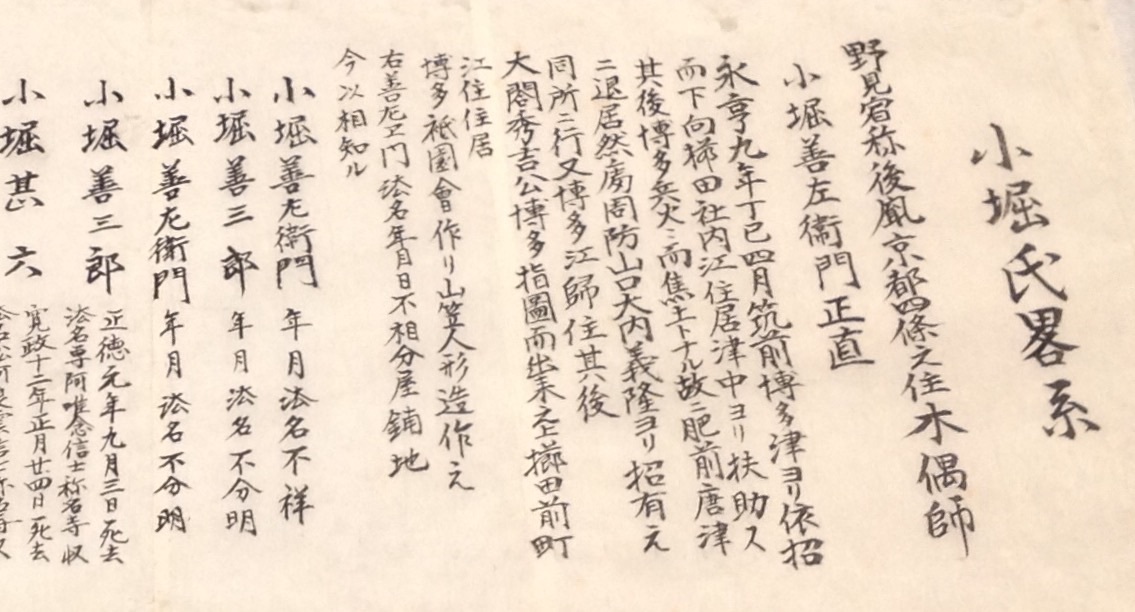 小堀氏畧系
野見宿称後胤京都四條之住木偶師
小堀善左衞門正直
永享九年丁巳四月筑前博多津ヨリ依招
而下向櫛田社内江住居津中ヨリ扶助ス
其後博多兵火ニ而焦土トナル故ニ肥前唐津
ニ退居然處周防山口大内義隆ヨリ招有之
同所ニ行又博多江歸住其後
大閤秀吉公博多指圖而出来之上櫛田前町
江住住居
博多祇園會作り山笠人形造作之
右善左卫門法名年月日不相分屋鋪地
今以相知ル
小堀善左衞門 年月法名不祥
小堀善三郎 年月法名不分明
小堀善左衞門 年月法名不分明
小堀善三郎 正德元年九月三日死去
法名専阿唯念信士称名寺収
小堀甚六 寛政十二年正月廿四日死去